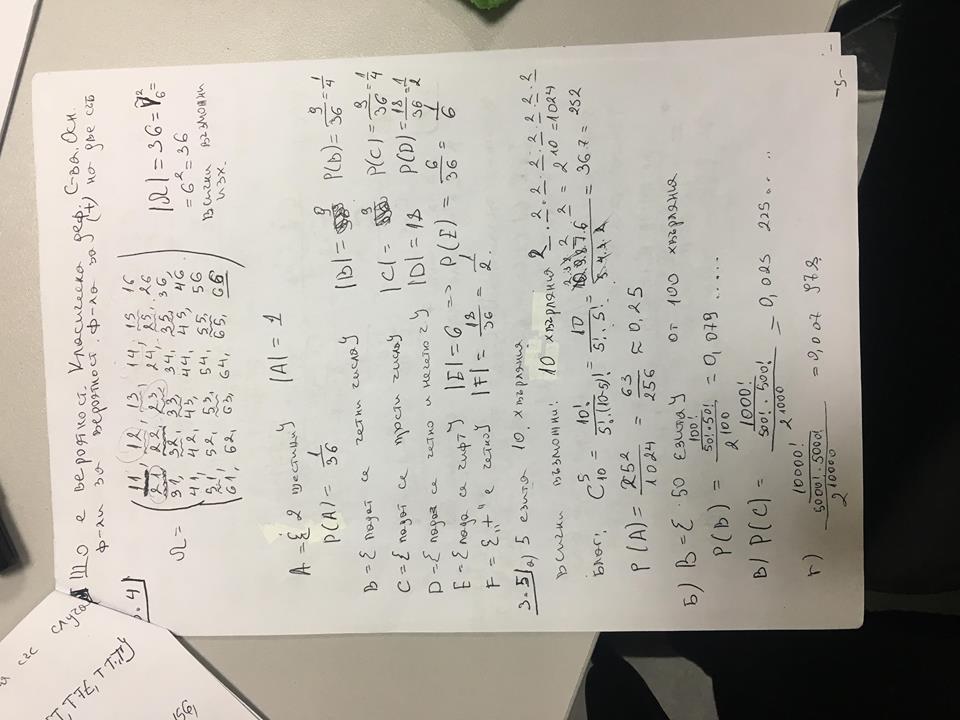 и със случа
Т, ТТЕ, ТТТ}
156,
Що е вероятност. Класическа деф. С-ва. Осн.
ф-ли за вероятност. ф-ла за (+) на две сб
3.4
Ω = ( 11, 12, 13, 14, 15 16
21 22, 23, 24, 25, 26
31, 32, 33, 34, 35, 36,
41, 42, 43, 44, 45, 46
51, 52, 53, 54, 55, 56
61, 62, 63, 64, 65, 66 )
|Ω| = 36 = Ṽ²₆ =
= 6² = 36
Всички възможни
изх.
A = { 2 шестици} |A| = 1
P(A) = 1/36
B = { падат се четни числа} |B| = 9 P(B) = 9/36 = 1/4
C = { падат се прости числа} |C| = 9 P(C) = 9/36 = 1/4
D = { падат се четно и нечетно ч} |D| = 18 P(D) = 18/36 = 1/2
E = { пада се чифт} |E| = 6 => P(E) = 6/36 = 1/6
F = { „+“ е четно} |F| = 18/36 = 1/2.
3.5/a) 5 езита 10 хвърляния
Всички възможни: 10 хвърляния 2 . 2 . 2 . 2 . 2 . 2 . 2 . 2
2 2 = 2¹⁰ = 1024
Благ: C⁵₁₀ = 10!/5!.(10-5)! = 10/5!.5! = 10.9.8.7.6/5.4.3.2 = 36.7 = 252
P(A) = 252/1024 = 63/256 ≈ 0,25
Б) B = { 50 езита} от 100 хвърляния
P(B) = 100!/50!.50!/2¹⁰⁰ = 0,079 .....
в/ P(C) = 1000!/500!.500!/2¹⁰⁰⁰ = 0,025 225 ....
г) 10000!/5000!.5000!/2¹⁰⁰⁰⁰ = 0,007 978
-5-